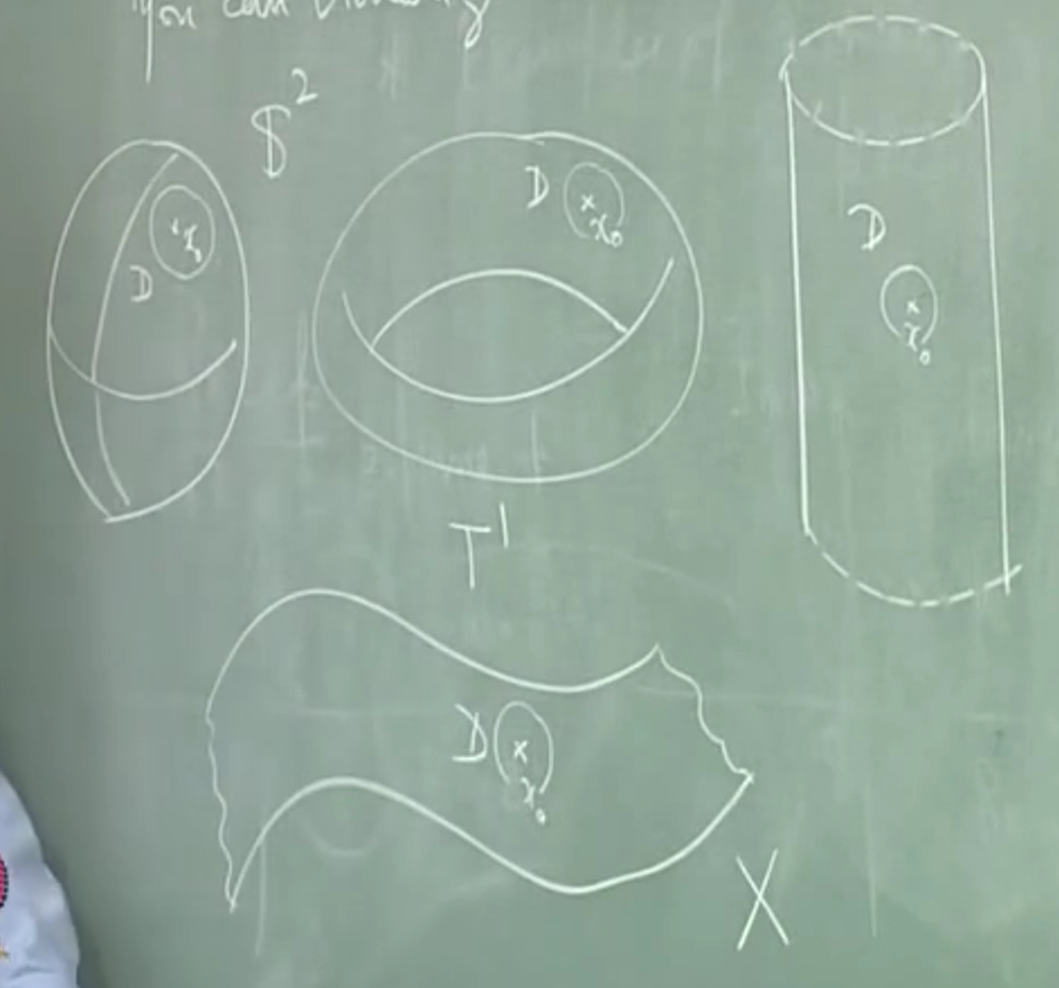 You can
S²
D
x₀
D
x₀
D
x₀
T¹
D
x₀
X